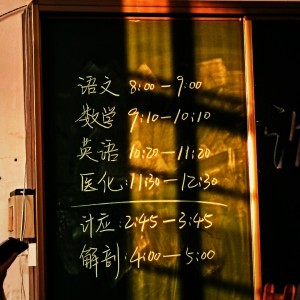 语文 8:00—9:00
数学 9:10—10:10
英语 10:20—11:20
医化:11:30—12:30
计应:2:45—3:45
解剖:4:00—5:00